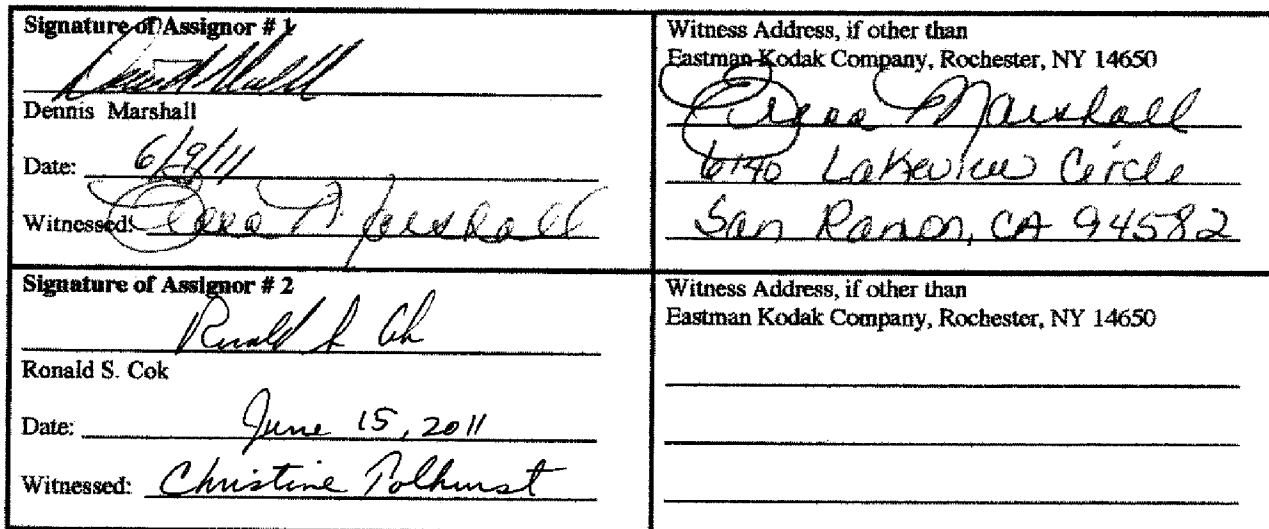 Signature of Assignor # 1
Dennis Marshall
Date: 6/9/11
Witnessed: Marshall
Witness Address, if other than
Eastman Kodak Company, Rochester, NY 14650
Marshall
6140 Lakeview Circle
San Ramon, CA 94582
Signature of Assignor # 2
Ronald S. Cok
Ronald S. Cok
Date: June 15, 2011
Witnessed: Christine Tolhurst
Witness Address, if other than
Eastman Kodak Company, Rochester, NY 14650